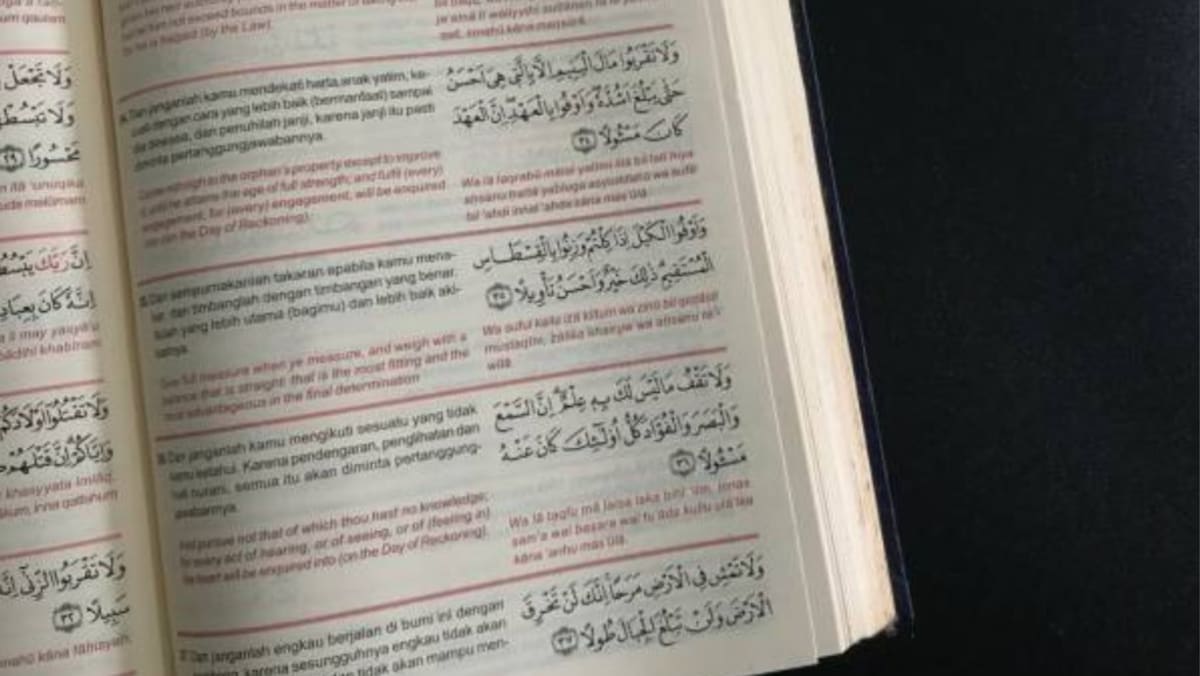 um gaulan
وَلَا تَجْعَلْ
وَلَا تَبْسُطْ
مَحْسُورًا ٢٩
n ilā 'unuqika
ude malūmam
اِنَّ رَبَّكَ يَبْسُطُ
اِنَّهٗ كَانَ بِعِبَادِ
bādihī khabīram
وَلَا تَقْتُلُوْٓا اَوْلَادَكُمْ
وَاِيَّاكُمْ اِنَّ قَتْلَهُمْ
khasyyata imlāq,
ākum, inna qatlahum
وَلَا تَقْرَبُوا الزِّنٰٓى اِنَّهٗ
سَبِيْلًا ٣٢
nahū kāna fāhisyah,
not exceed bounds in the matter of
he is helped (by the Law).
Dan janganlah kamu mendekati harta anak yatim, ke-
cuali dengan cara yang lebih baik (bermanfaat) sampai
dia dewasa, dan penuhilah janji, karena janji itu pasti
diminta pertanggungjawabannya.
Come not nigh to the orphan's property except to improve
it, until he attains the age of full strength; and fulfil (every)
engagement, for (every) engagement, will be enquired
into (on the Day of Reckoning).
وَلَا تَقْرَبُوْا مَالَ الْيَتِيْمِ اِلَّا بِالَّتِيْ هِيَ اَحْسَنُ
حَتّٰى يَبْلُغَ اَشُدَّهٗ وَاَوْفُوْا بِالْعَهْدِ اِنَّ الْعَهْدَ
كَانَ مَسْـُٔوْلًا ٣٤
Wa lā taqrabū mālal yatīmi illā bil latī hiya
ahsanu hattā yabluga asyuddahū wa aufū
bil 'ahdi innal 'ahda kāna mas'ūlā.
Dan sempurnakanlah takaran apabila kamu mena-
kar, dan timbanglah dengan timbangan yang benar.
Itulah yang lebih utama (bagimu) dan lebih baik aki-
batnya.
Give full measure when ye measure, and weigh with a
balance that is straight: that is the most fitting and the
most advantageous in the final determination
وَاَوْفُوا الْكَيْلَ اِذَا كِلْتُمْ وَزِنُوْا بِالْقِسْطَاسِ
الْمُسْتَقِيْمِ ذٰلِكَ خَيْرٌ وَّاَحْسَنُ تَأْوِيْلًا ٣٥
Wa auful kaila izā kiltum wa zinū bil qistāsil
mustaqīm, zālika khairuw wa ahsanu ta'-
wīlā.
36 Dan janganlah kamu mengikuti sesuatu yang tidak
kamu ketahui. Karena pendengaran, penglihatan dan
hati nurani, semua itu akan diminta pertanggung-
jawabannya.
And pursue not that of which thou hast no knowledge;
for every act of hearing, or of seeing, or of (feeling in)
the heart will be enquired into (on the Day of Reckoning).
وَلَا تَقْفُ مَا لَيْسَ لَكَ بِهٖ عِلْمٌ اِنَّ السَّمْعَ
وَالْبَصَرَ وَالْفُؤَادَ كُلُّ اُولٰۤىِٕكَ كَانَ عَنْهُ
مَسْـُٔوْلًا ٣٦
Wa lā taqfu mā laisa laka bihī 'ilm, innas
sam'a wal basara wal fu'āda kullu ulā'ika
kāna 'anhu mas'ūlā.
37 Dan janganlah engkau berjalan di bumi ini dengan
karena sesungguhnya engkau tidak akan
dan tidak akan mampu men-
وَلَا تَمْشِ فِى الْاَرْضِ مَرَحًا اِنَّكَ لَنْ تَخْرِقَ
الْاَرْضَ وَلَنْ تَبْلُغَ الْجِبَالَ طُوْلًا ٣٧